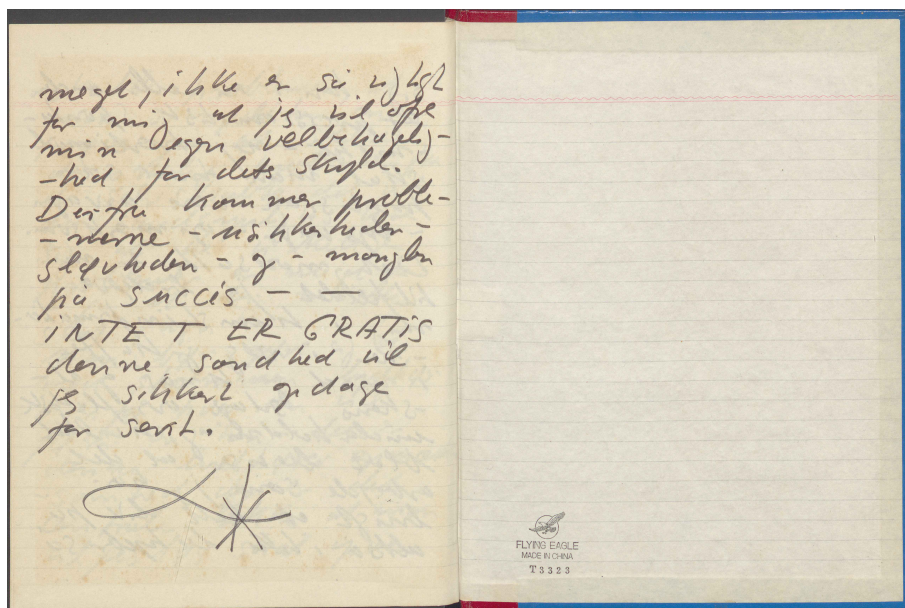 meget, ikke er så vigtigt
for mig at jeg vil ofre
min egen velbehagelig-
-hed for dets skyld.
Derfra kommer proble-
-merne - usikkerheden -
sløvheden - og - manglen
på succes - —
INTET ER GRATIS
denne sandhed vil
jeg sikkert opdage
for sent.
FLYING EAGLE
MADE IN CHINA
T3323